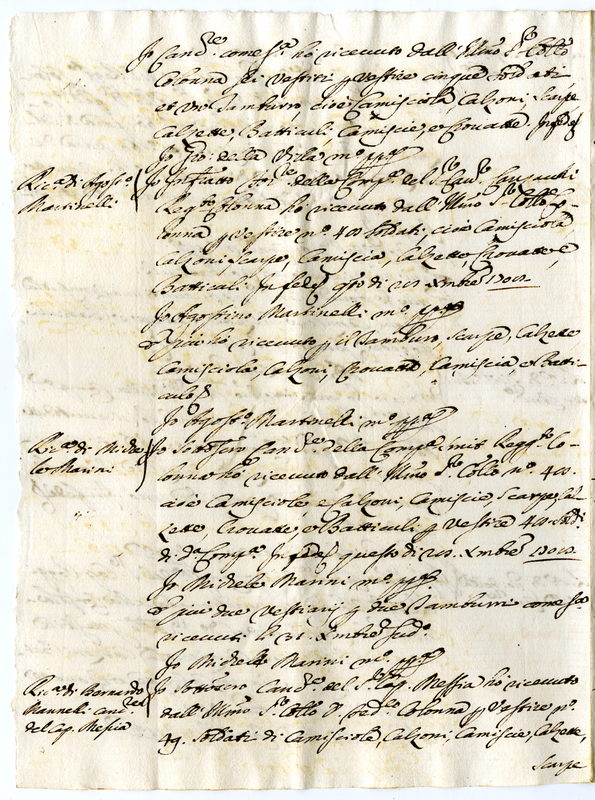 Io Cand.re come s.a ho riceuuto dall'Illmo S.r Collo
Colonna li Vestiti p vestire cinque soldati
et un Tamburro, cioè Camisciola, Calzoni, Scarpe
Calzette, Batticuli, Camiscie, e Crouatte. In fede
Io Gio: della Villa m.o pp.a
Ric.a di Agost.o
Martinelli
Io Infratto della Comp.a del S.r Cau.r
Regg.to Colonna ho riceuuto dall'Illmo S.r Collo Co-
lonna p vestire n.o 40 soldati cioè Camisciola
Calzoni, Scarpe, Camiscia, Calzette Crouatte, e
Batticuli. In fede q.to di Xmbre
Io Agostino Martinelli m.o pp.a
E più ho riceuuto p il Tamburo, Scarpe, Calzette
Camisciola, Calzoni, Crouatta, Camiscia, e Batti-
culo
Io Agost.o Martinelli m.o pp.a
Ric.a di Miche
le Marini
Io Sottos.to Cand.re della Comp.a mia Regg.to Co-
lonna ho riceuuto dall'Illmo S.r Collo n.o 40
cioè Camisciole, e Calzoni, Camiscie Scarpe, Cal
zette, Crouatte, e Batticuli p vestire 40 sold.i
di d.a Comp.a In fede questo di Xmbre
Io Michele Marini m.o pp.a
E più due Vestiarij p due Tamburri come s.a
riceuuti li 31. Xmbre sud.o
Io Michele Marini m.o pp.a
Ric.a di Bernardo
Mannelli
del Cap. Messia
Io Sottos.to Cand.re del S.r Cap. Messia ho riceuuto
dall'Illmo S.r Collo D. Fed.co Colonna p vestire n.o
49. Soldati di Camisciole, Calzoni, Camiscie, Calzette,
Scarpe